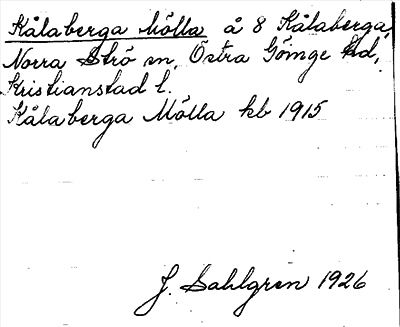 Kålaberga Mölla å 8 Kålaberga,
Norra Strö sn, Östra Göinge hd,
Kristianstad l.
Kålaberga Mölla kb 1915
J. Sahlgren 1926